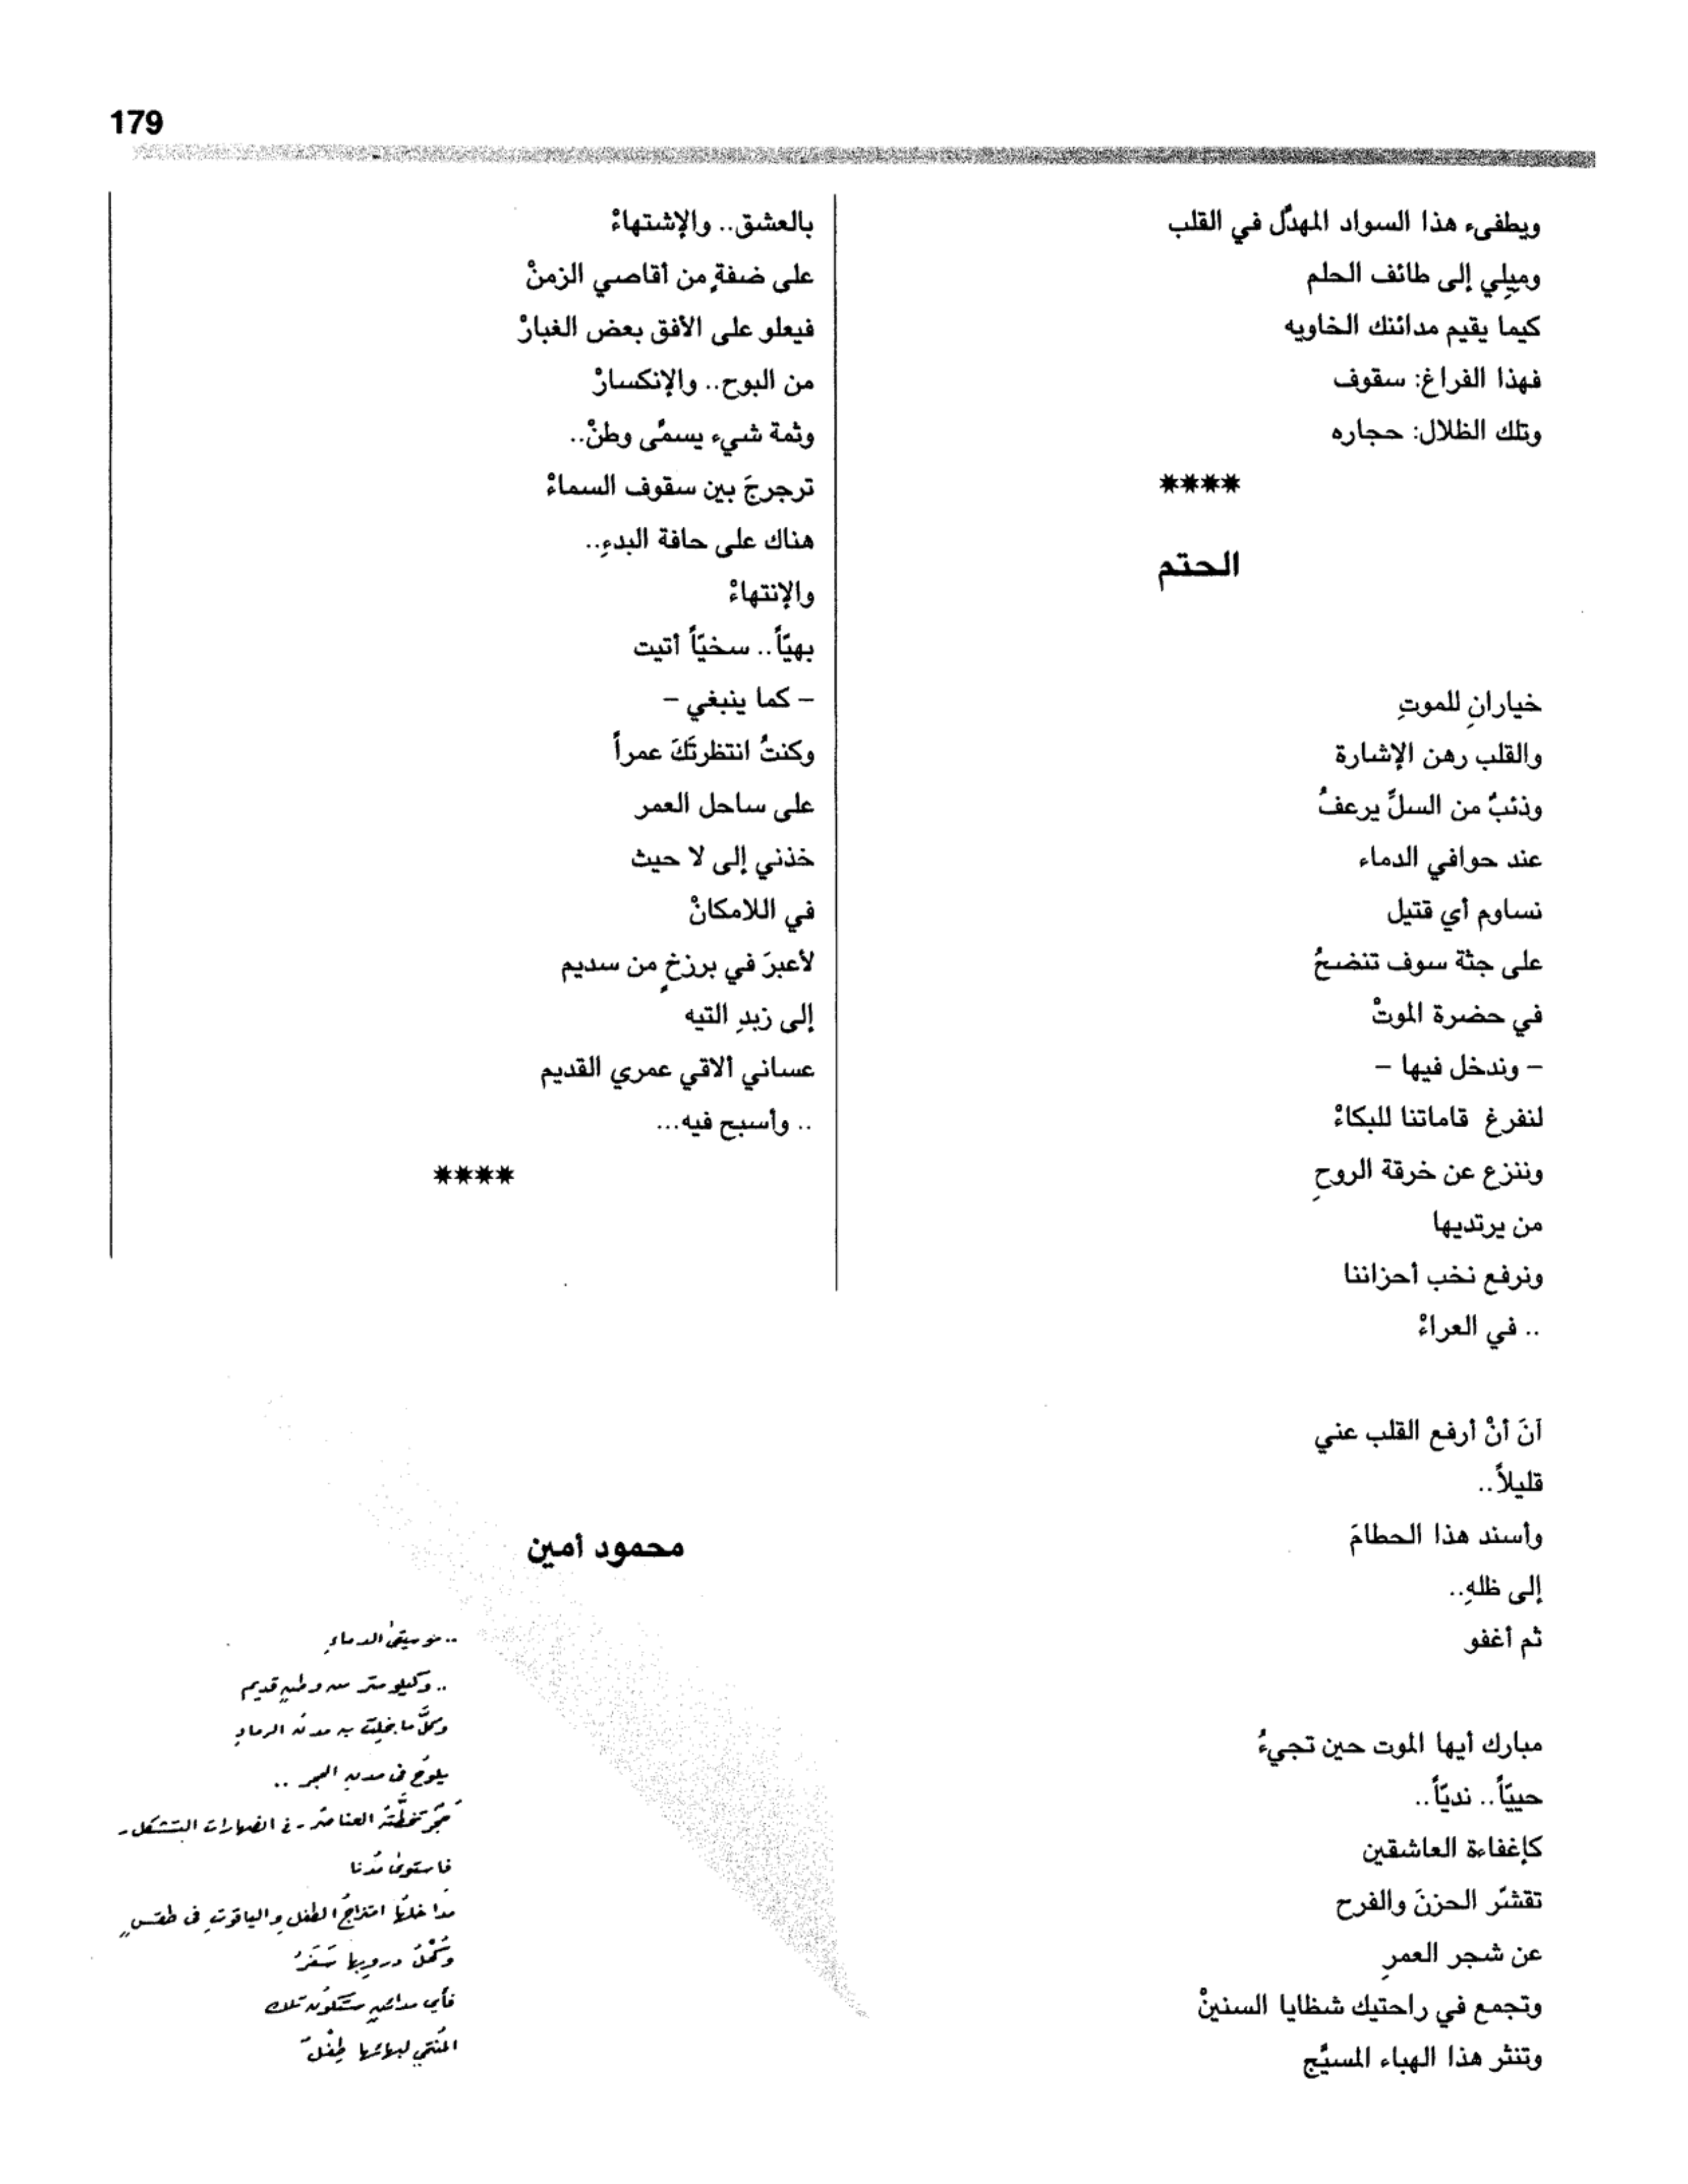 179
ويطفىء هذا السواد المهدّل في القلب
وميلِي إلى طائف الحلم
كيما يقيم مدائنك الخاويه
فهذا الفراغ: سقوف
وتلك الظلال: حجاره
****
الحتم
خيارانِ للموتِ
والقلب رهن الإشارة
وذئبٌ من السلِّ يرعفُ
عند حوافي الدماء
نساوم أي قتيل
على جثة سوف تنضحُ
في حضرة الموتْ
– وندخل فيها –
لنفرغ قاماتنا للبكاءْ
وننزع عن خرقة الروحِ
من يرتديها
ونرفع نخب أحزاننا
.. في العراءْ
آنَ أنْ أرفع القلب عني
قليلاً..
وأسند هذا الحطامَ
إلى ظلهِ..
ثم أغفو
مبارك أيها الموت حين تجيءُ
حييّاً.. نديّاً..
كإغفاءة العاشقين
تقشّر الحزنَ والفرح
عن شجر العمرِ
وتجمع في راحتيك شظايا السنينْ
وتنثر هذا الهباء المسيَّج
بالعشق.. والإشتهاءْ
على ضفةٍ من أقاصي الزمنْ
فيعلو على الأفق بعض الغبارْ
من البوح.. والإنكسارْ
وثمة شيء يسمَّى وطنْ..
ترجرجَ بين سقوف السماءْ
هناك على حافة البدءِ..
والإنتهاءْ
بهيّاً.. سخيّاً أتيت
– كما ينبغي –
وكنتُ انتظرتَكَ عمراً
على ساحل العمر
خذني إلى لا حيث
في اللامكانْ
لأعبرَ في برزخٍ من سديم
إلى زبدِ التيه
عساني ألاقي عمري القديم
.. وأسبح فيه...
****
محمود أمين
.. موسيقى الدماءِ
.. وكيلومتر من وطنٍ قديم
وكلَّ ما بخلت به مدن الرمادِ
يلوحُ في مدنِ الحجر ..
حَجَرٌ تخطَّته العناصر ـ في انصهارات التشكل ـ
فاستوى مُدنا
مداخلها امتزاجُ الطفلِ والياقوتِ في طقسٍ
وكلُّ دروبها سَفَرُ
فأي مدائنٍ ستكونُ تلك
المُنتمي لبهائها طِفْلٌ